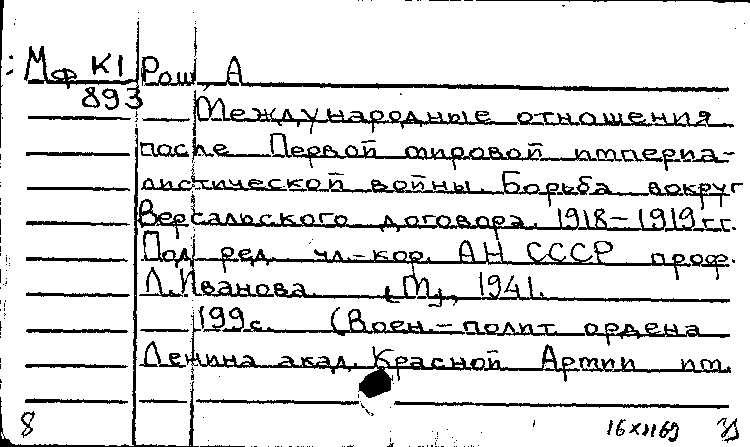 Мф К1 Рош, А
893
Международные отношения
после Первой мировой империа-
листической войны. Борьба вокруг
Версальского договора. 1918-1919 гг.
Под ред. чл.-кор. АН СССР проф.
Л. Иванова. [М], 1941.
199 с. (Воен.-полит. ордена
Ленина акад. Красной Армии им.
8 16 XII 69